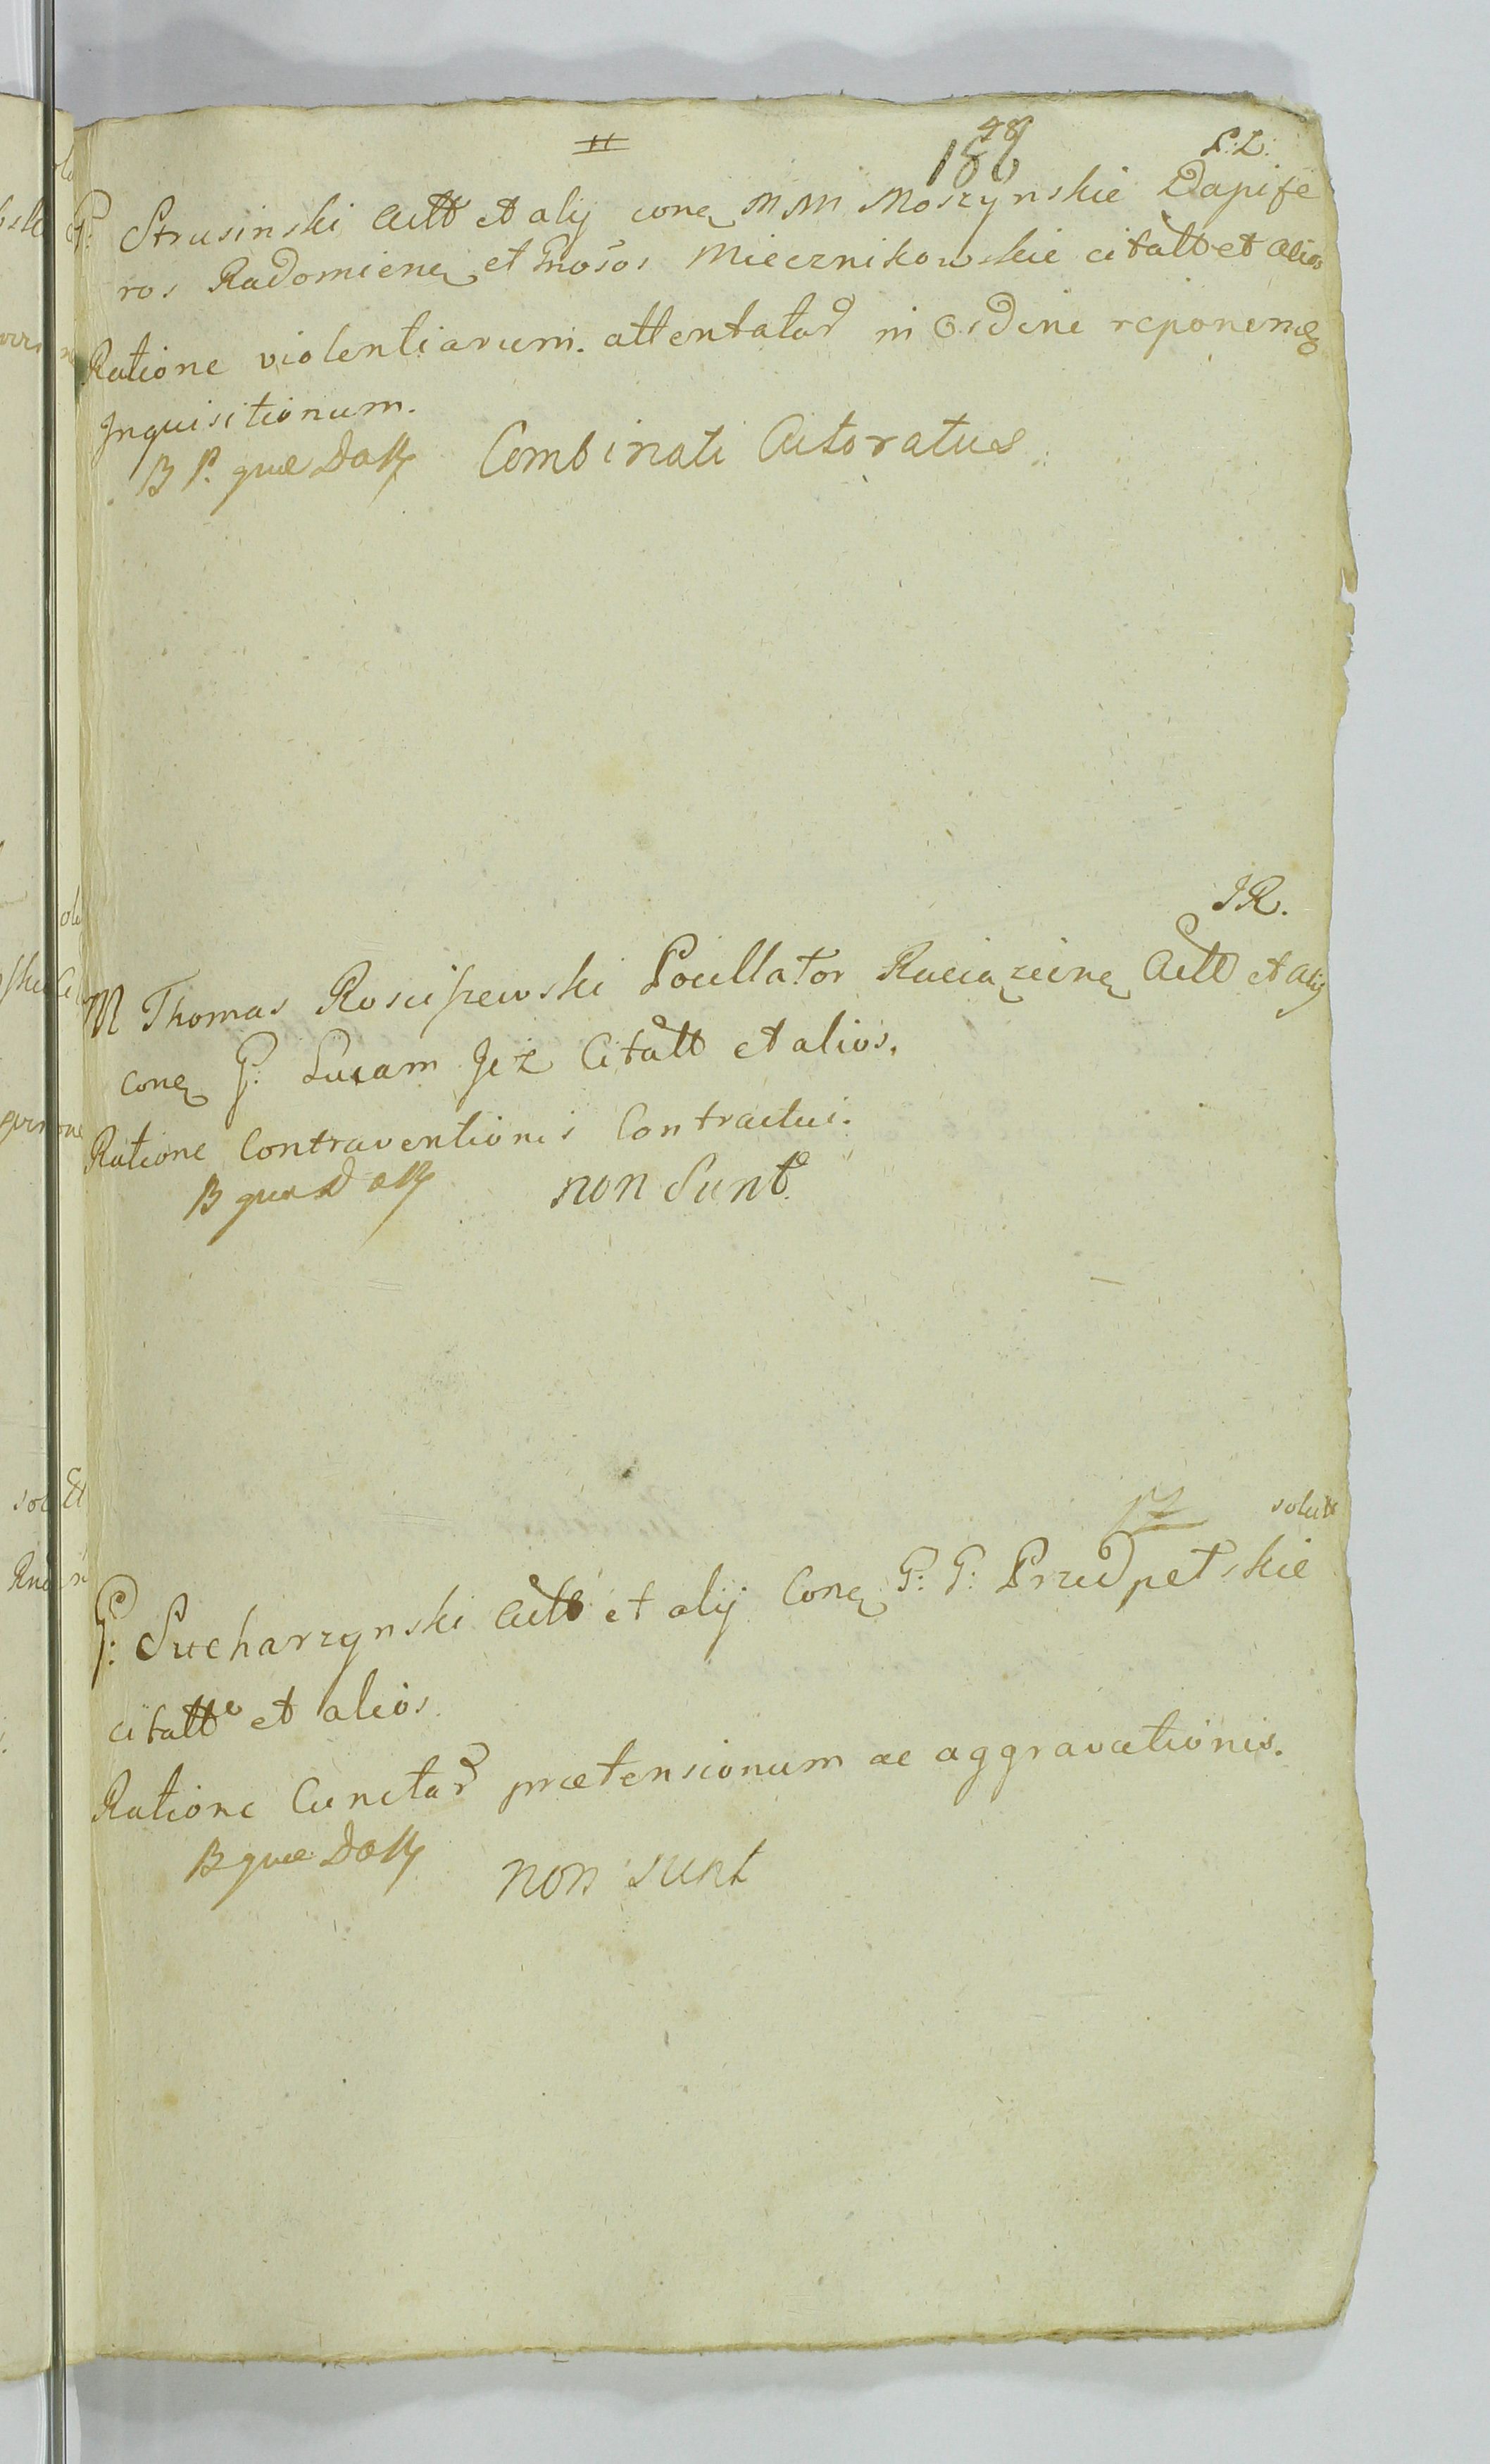 48
186
P: Z:
G: Strusinski Actt et alij conq MM Moszynskie Dapife
ros Radomienq et Gnosos Miecznikowskie citatt et alios
Ratione violentiarum attentatar in Ordine reponenq
Inquisitionum.
B P. quæ Combinati Actoratus
JR.
M Thomas Rosciszewski Pocillator Raciązienq Actt et alij
conq G: Lucam Jeż Citatt et alios.
Ratione Contraventionis Contractus.
B quæ non sunt
solutt
G: Sucharzynski Actt et alij Conq G: G: Przedpełskie
citatt et alios
Ratione Cunctar prætensionum ac aggravationis.
B quæ non sunt